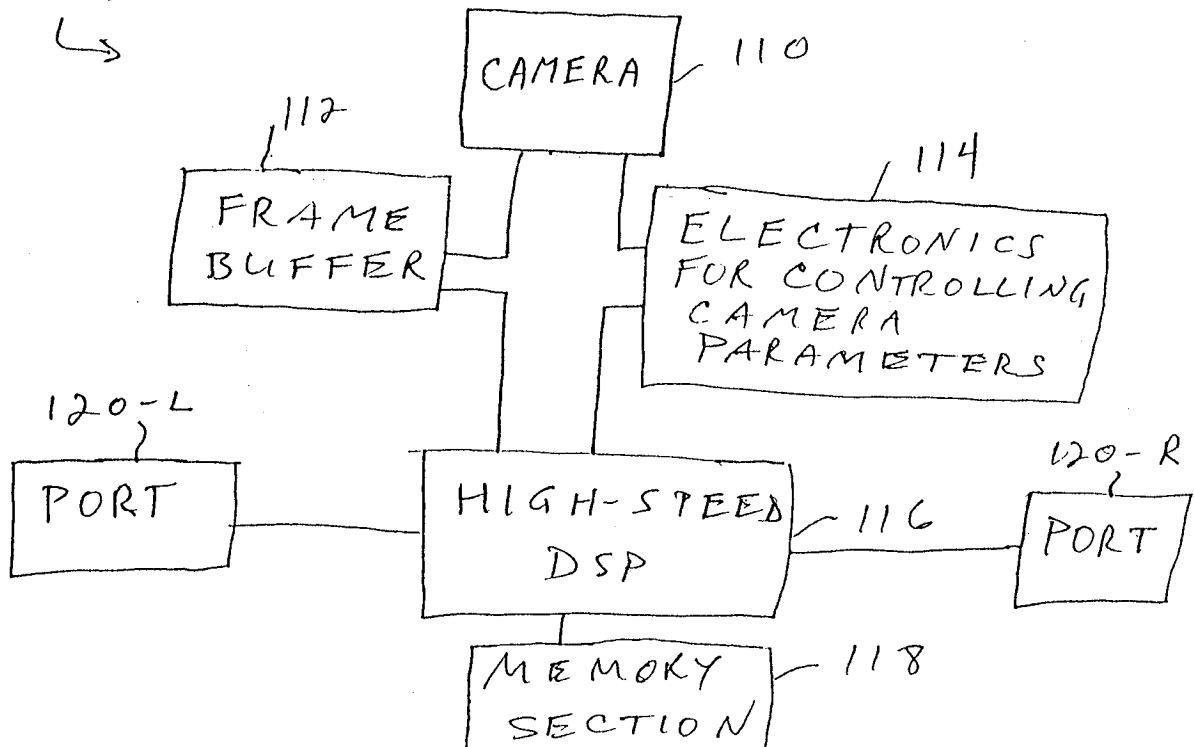 CAMERA
110
112
FRAME
BUFFER
114
ELECTRONICS
FOR CONTROLLING
CAMERA
PARAMETERS
120-L
PORT
HIGH-SPEED
DSP
116
120-R
PORT
MEMORY
SECTION
118